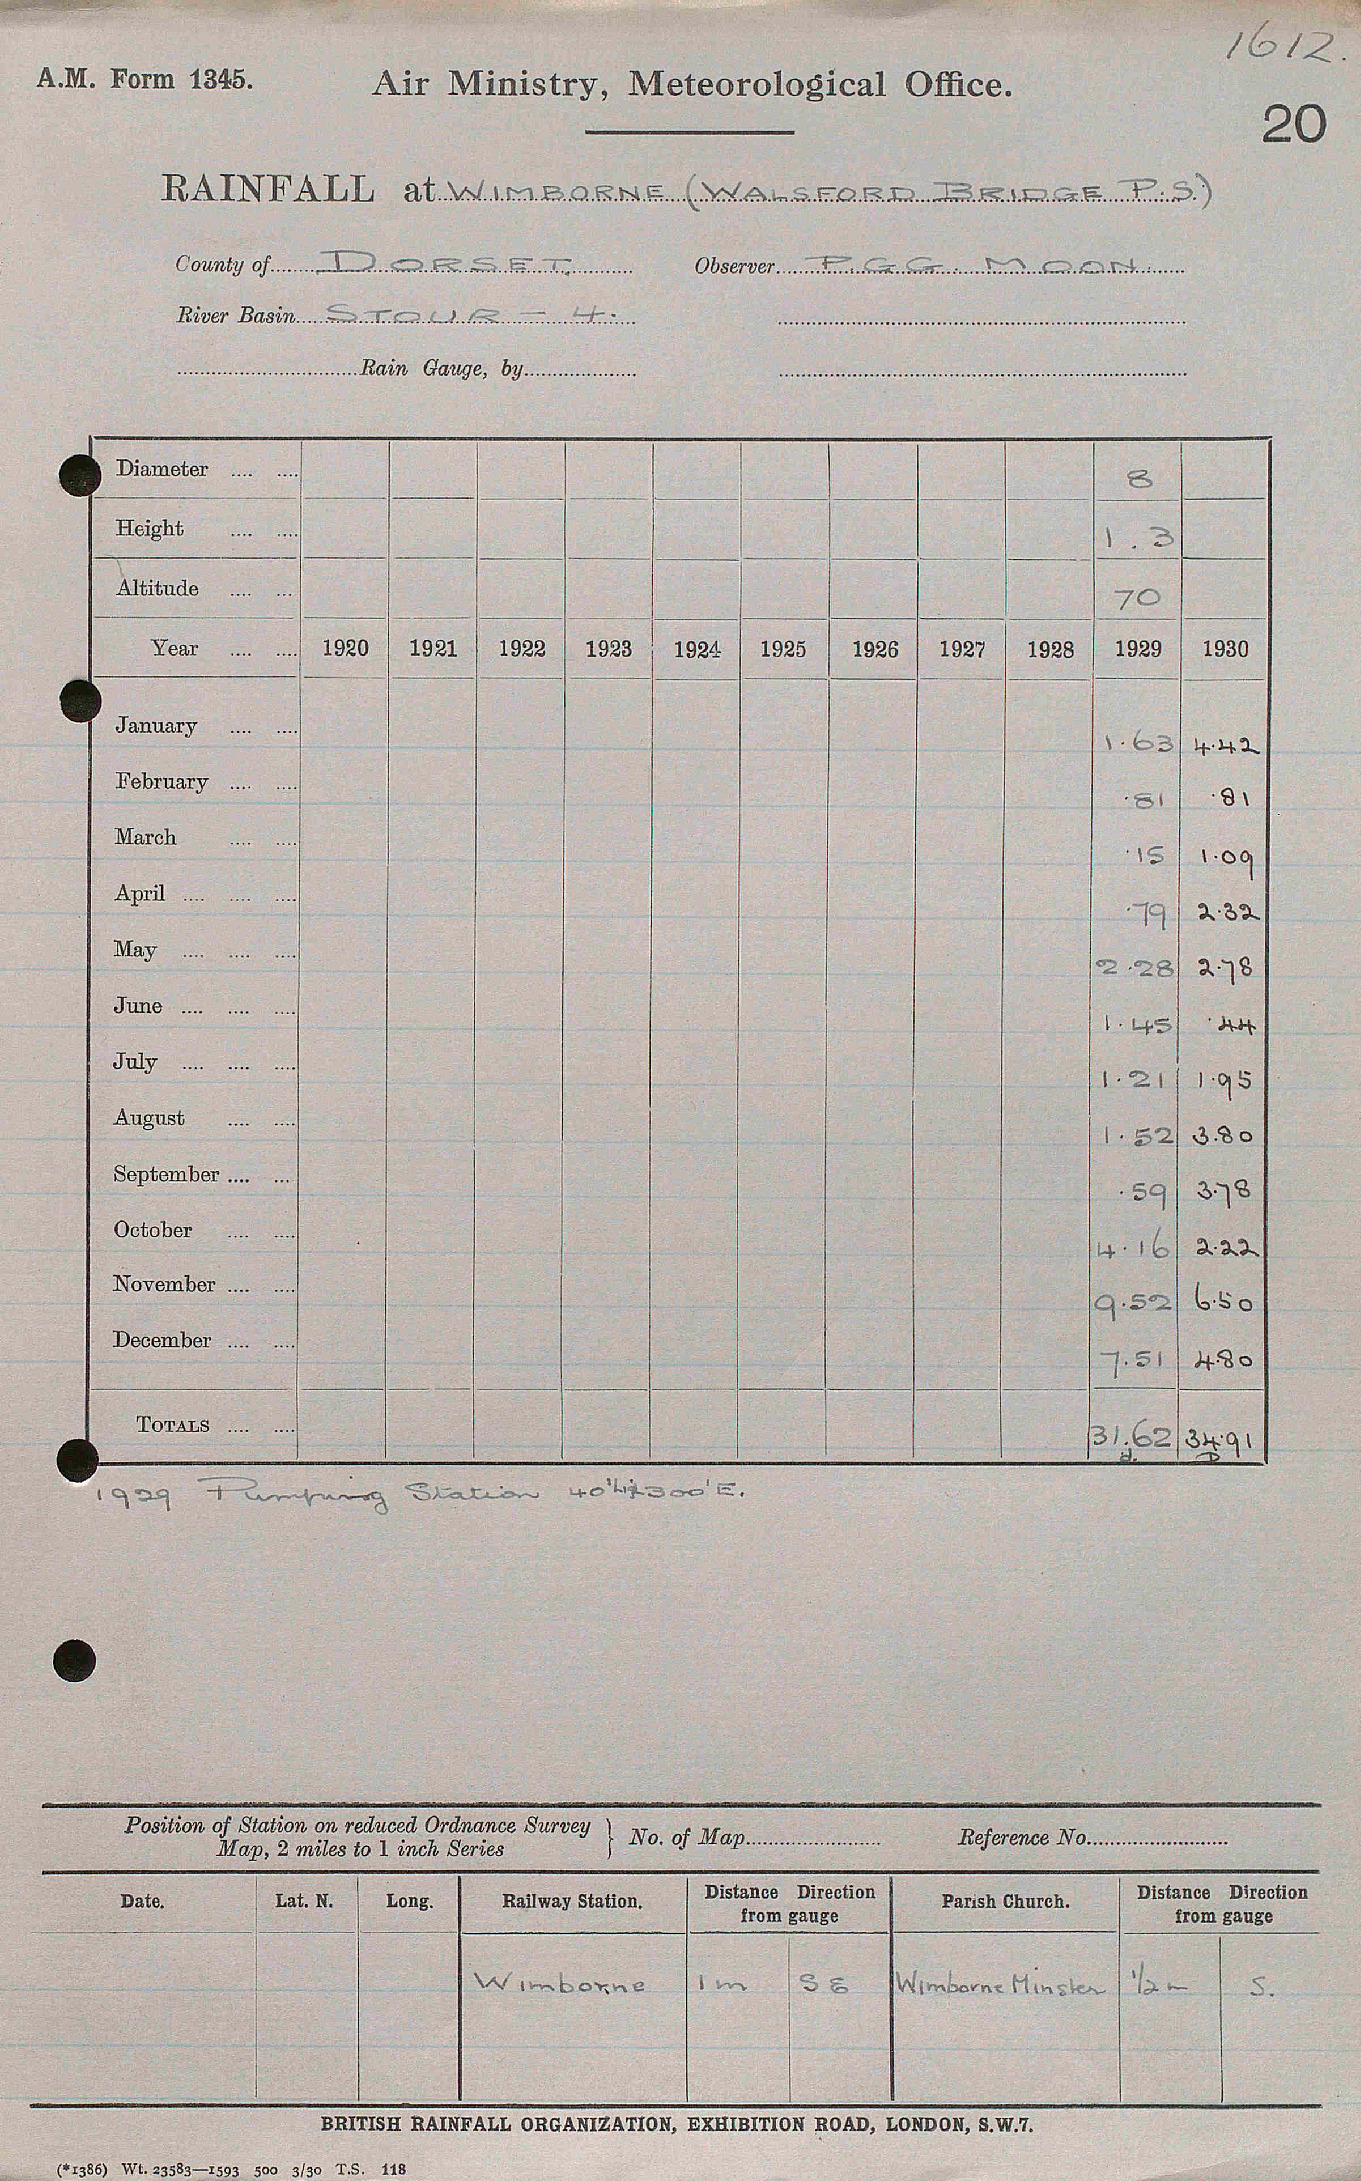 1612.
A.M. Form 1345. Air Ministry, Meteorological Office.
20
RAINFALL at WIMBORNE (WALSFORD BRIDGE P.S.)
County of DORSET. Observer P.G.G. MOON.
River Basin STOUR – 4.
Rain Gauge, by
Diameter 8
Height 1.3
Altitude 70
Year 1920 1921 1922 1923 1924 1925 1926 1927 1928 1929 1930
January 1·63 4·42
February ·81 ·81
March ·15 1·09
April ·79 2·32
May 2·28 2·78
June 1·45 ·44
July 1·21 1·95
August 1·52 3·80
September ·59 3·78
October 4·16 2·22
November 9·52 6·50
December 7·51 4·80
TOTALS 31.62 34·91
1929 Pumping Station 40' 300' E.
Position of Station on reduced Ordnance Survey
Map, 2 miles to 1 inch Series } No. of Map Reference No.
Date. Lat. N. Long. Railway Station. Distance Direction from gauge Parish Church. Distance Direction from gauge
Wimborne 1 m S E Wimborne Minster 1/2 m S.
BRITISH RAINFALL ORGANIZATION, EXHIBITION ROAD, LONDON, S.W.7.
(*1386) Wt. 23583—1593 500 3/30 T.S. 118